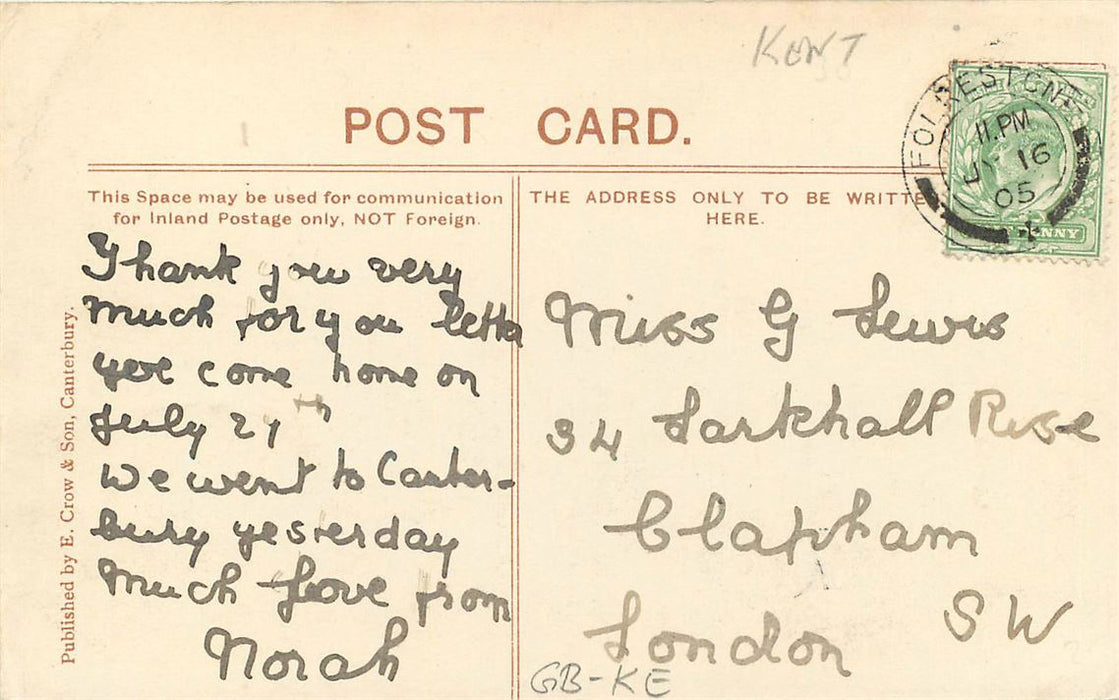 KENT
POST CARD.
FOLKESTONE
11.PM
JY 16
05
This Space may be used for communication
for Inland Postage only, NOT Foreign.
Thank you very
much for you letter
yere come home on
July 27th
We went to Canter-
bury yesterday
much love from
Norah
THE ADDRESS ONLY TO BE WRITTE
HERE.
Miss G Lewis
34 Larkhall Rise
Clapham
London SW
GB-KE
Published by E. Crow & Son, Canterbury.